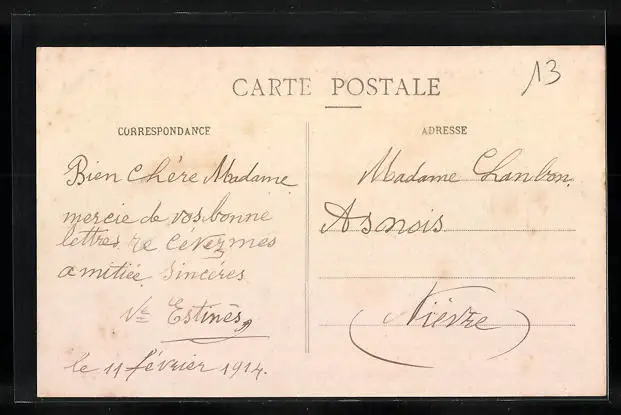 13
CARTE POSTALE
CORRESPONDANCE
Bien Chère Madame
mercie de vos bonne
lettres re cévez mes
amitiée Sincéres
Ve Estinès
le 11 février 1914.
ADRESSE
Madame Chanbon.
Asnois
Nièvre